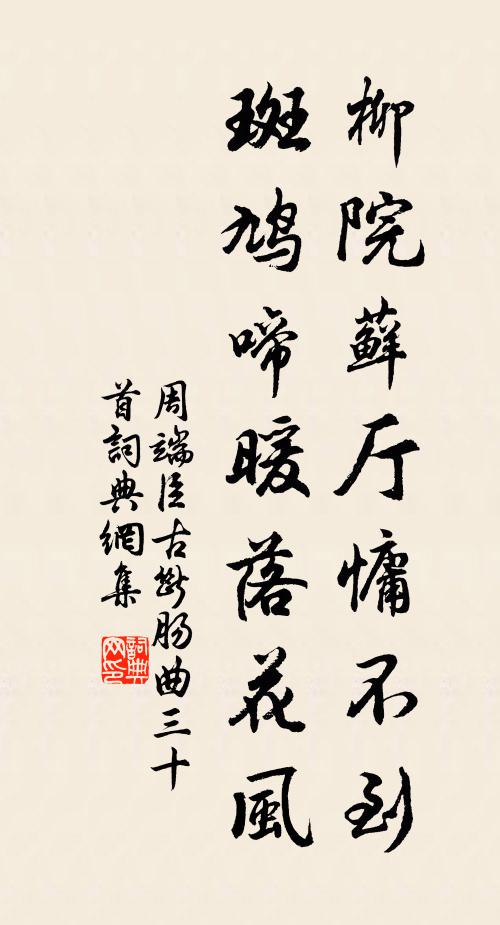 柳院蘚厅慵不到
斑鳩啼暖落花風
周端臣古斷肠曲三十
首詞典網集
詞典
网印